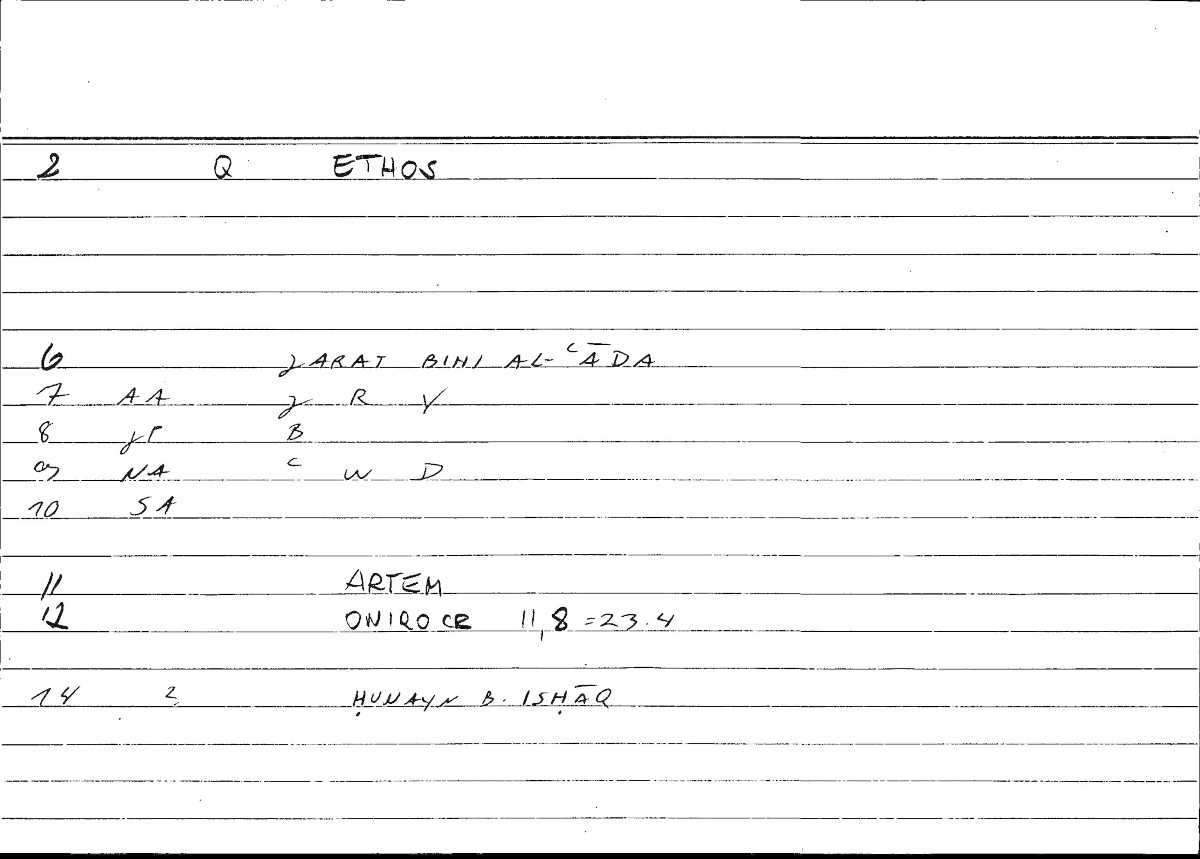 2 Q ETHOS
6 ȷARAT BIHI AL-ʿĀDA
7 AA ȷ R Y
8 ȷP B
9 NA ʿ W D
10 SA
11 ARTEM
12 ONIROCR 11,8 =23.4
14 2 ḤUNAYN B. ISḤĀQ